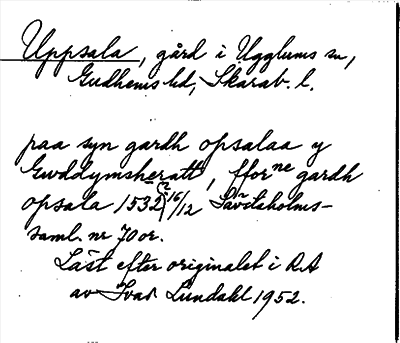 Uppsala, gård i Ugglums sn,
Gudhems hd, Skarab. l.
paa syn gardh opsalaa y
Gwddymsheratt, fforne gardh
opsala 1532 (?) 16/12 Sävstaholms-
saml. nr 70 or.
Läst efter originalet i RA
av Ivar Lundahl 1952.